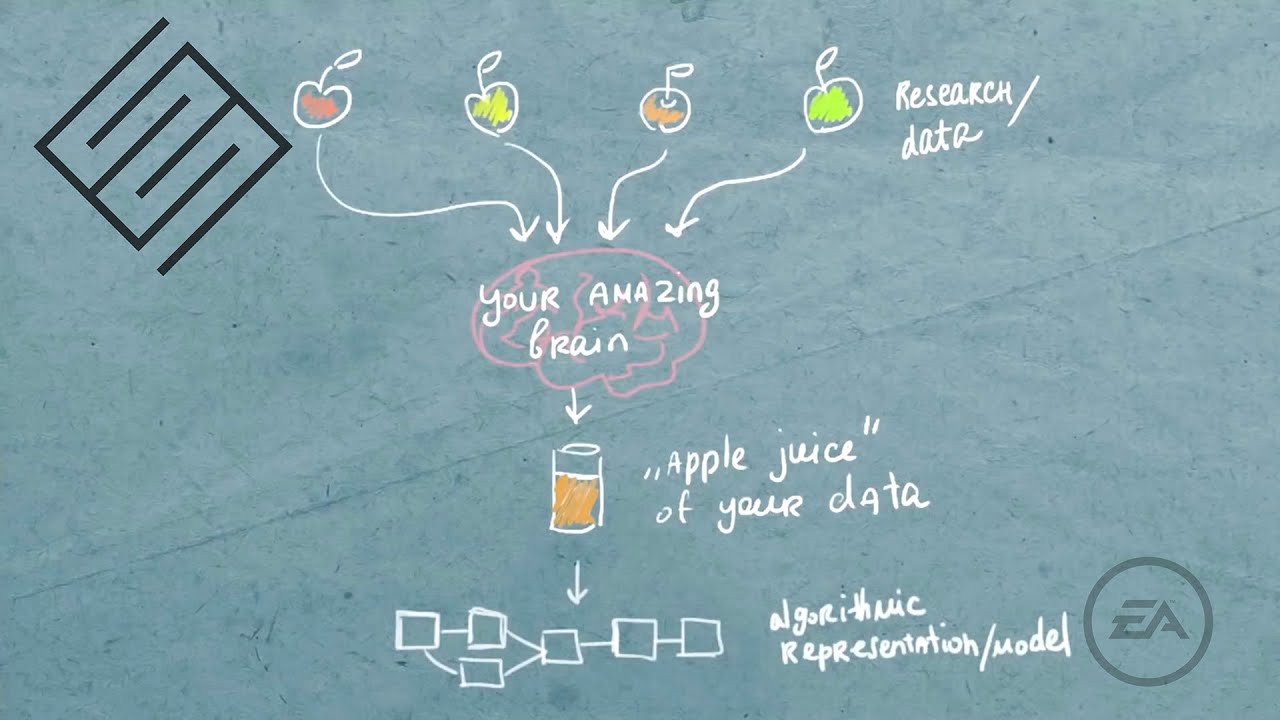 Research/
data
your amazing
brain
„Apple juice"
of your data
algorithmic
representation/model
EA